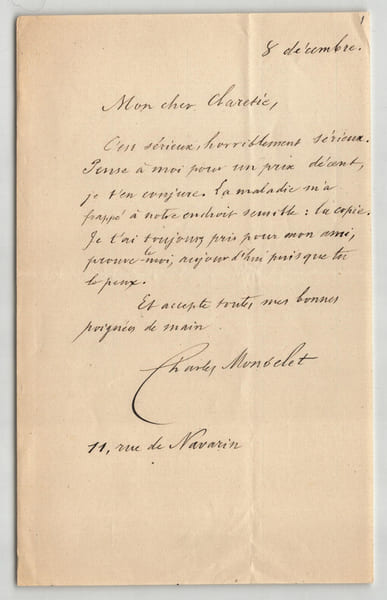 8 décembre.
Mon cher Claretie,
C'est sérieux, horriblement sérieux.
Pense à moi pour un prix décent,
je t'en conjure. La maladie m'a
frappé à notre endroit sensible : la copie.
Je t'ai toujours pris pour mon ami,
prouve-le-moi, aujourd'hui puisque tu
le peux.
Et accepte toutes mes bonnes
poignées de main
Charles Monselet
11, rue de Navarin